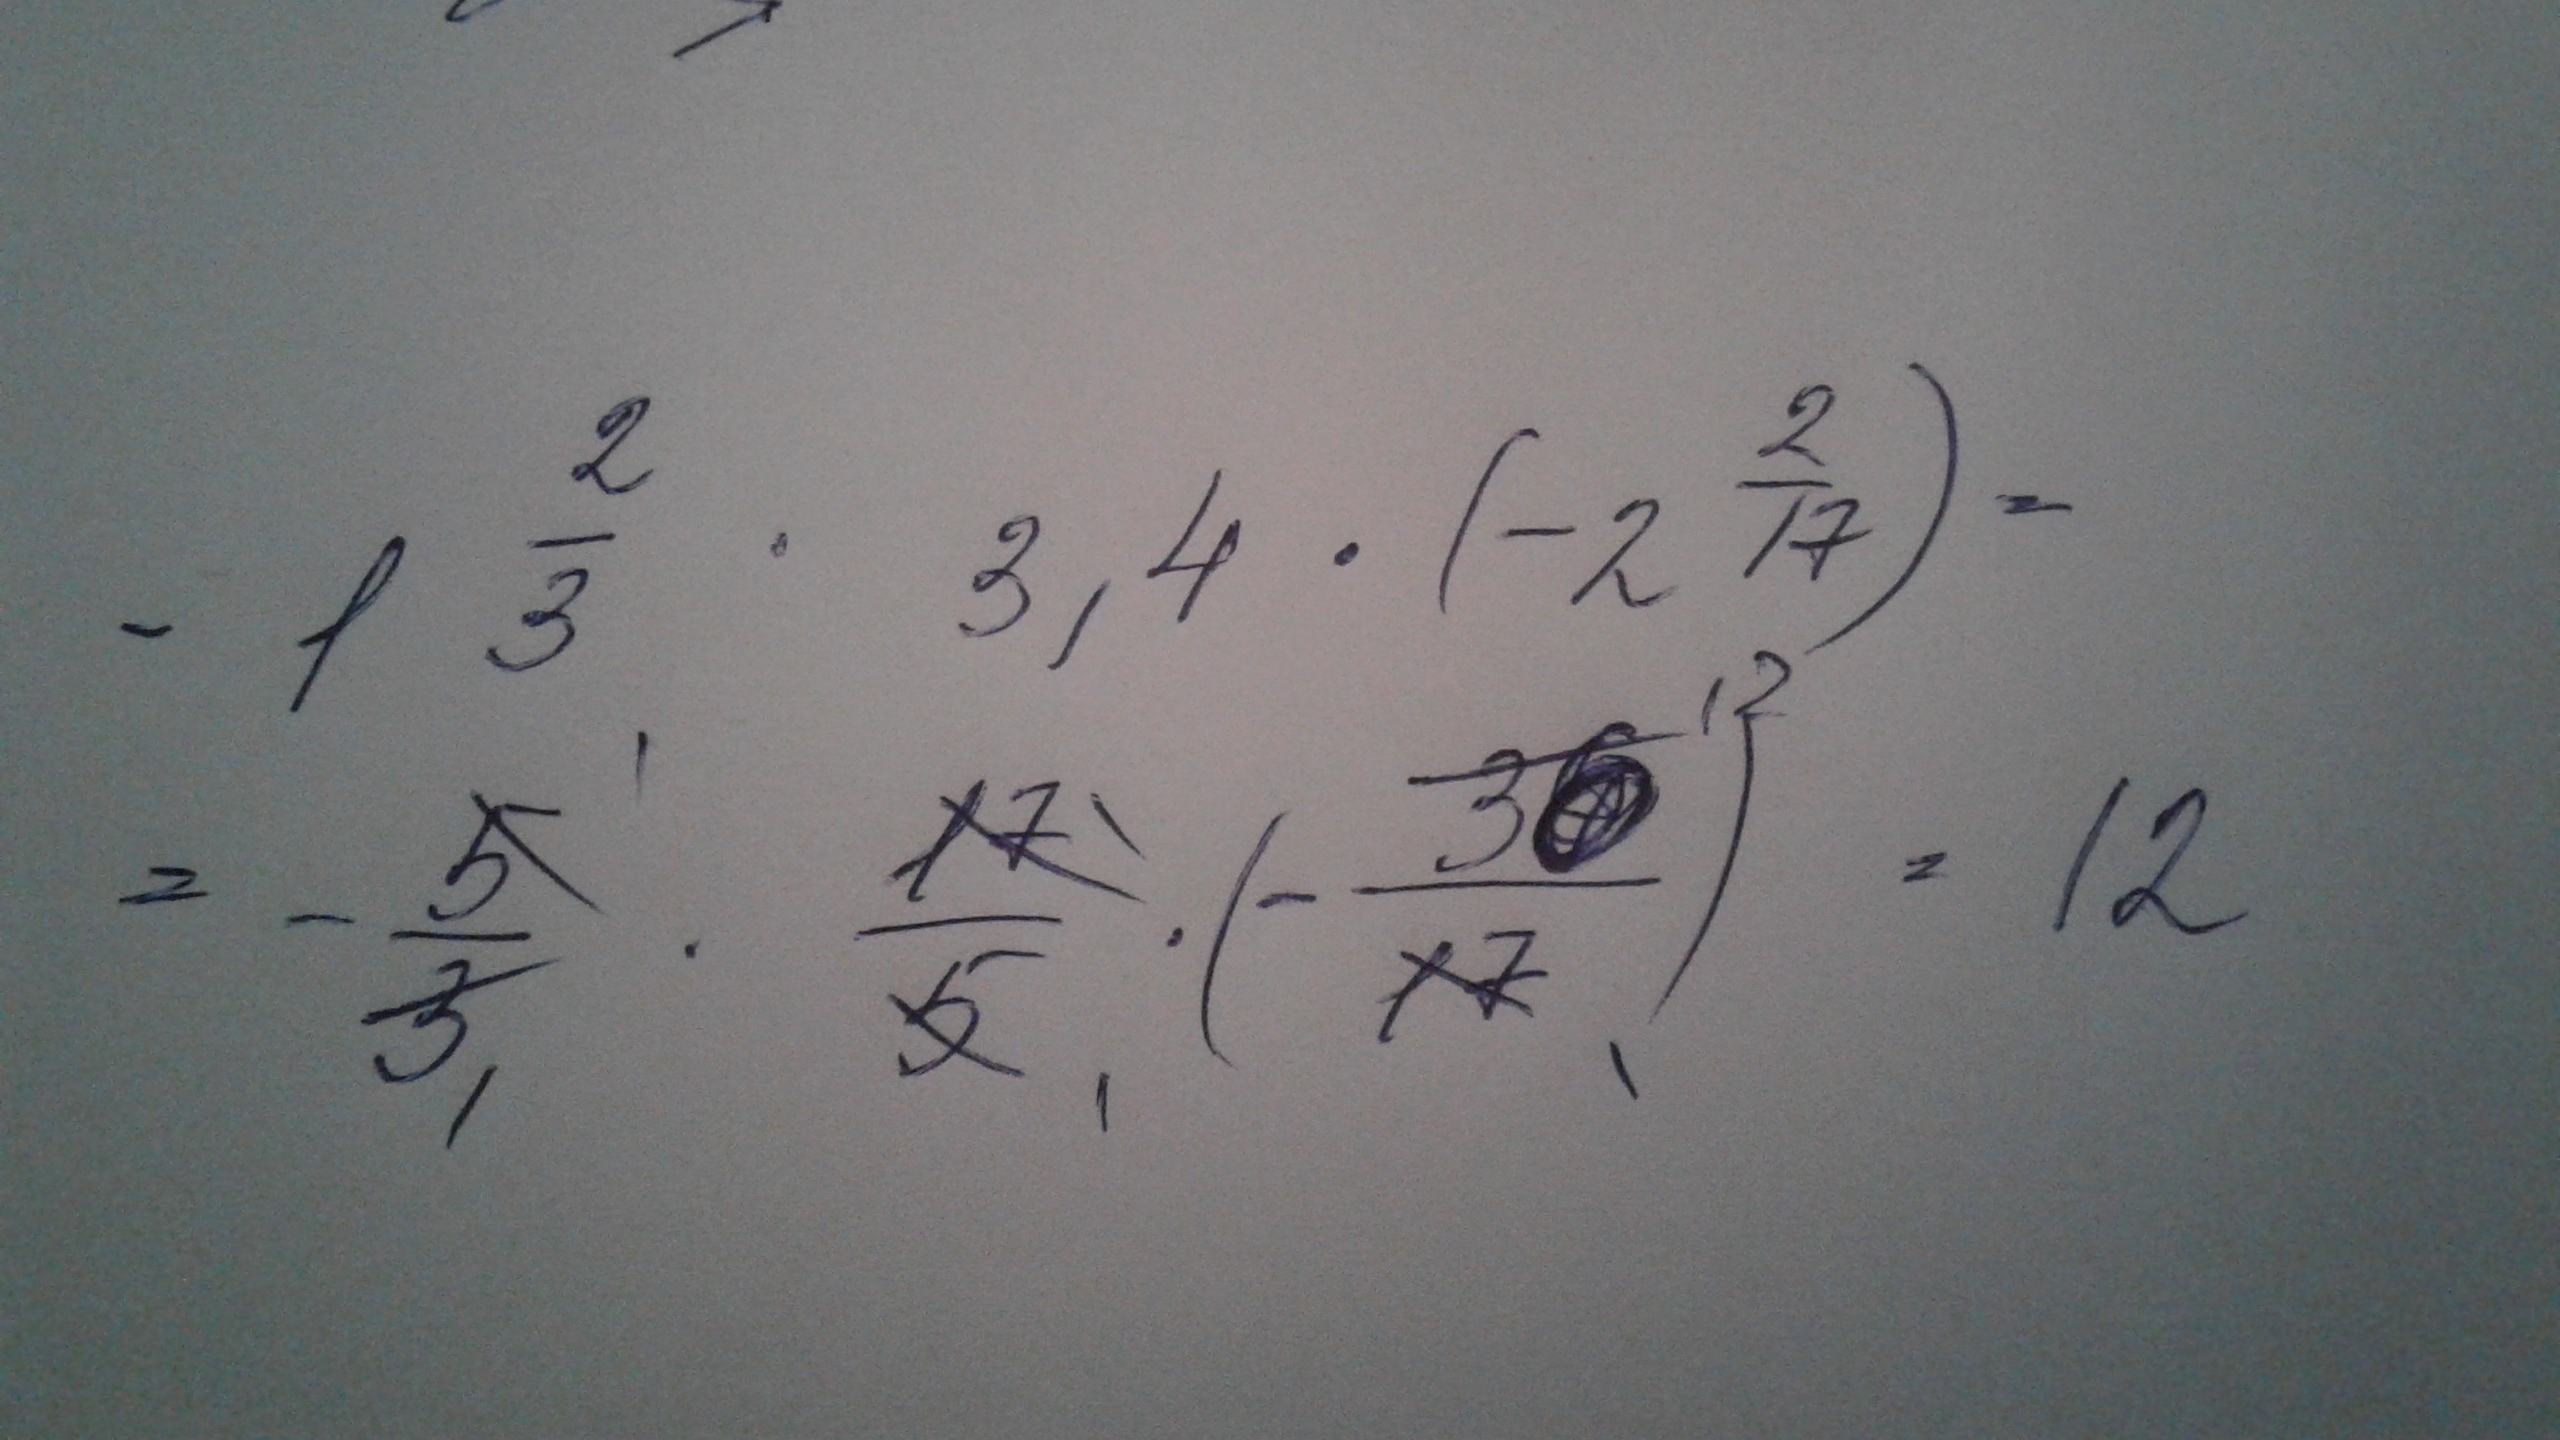 - 1 2/3 · 3,4 · (-2 2/17) =
= - 5/3 · 17/5 · (- 36/17) = 12